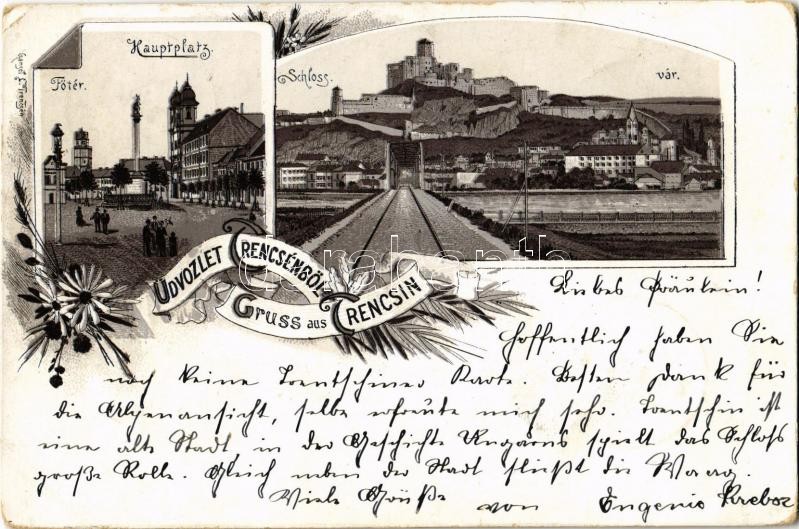 Hauptplatz.
Főtér.
Schloss.
vár.
ÜDVÖZLET TRENCSÉNBŐL
GRUSS aus TRENCSIN
Darabanth
Liebes Fräulein!
Hoffentlich haben Sie
noch keine Trentschiner Karte. Besten Dank für
die Alpenansicht, selbe erfreute mich sehr. Trentschin ist
eine alte Stadt, in der Geschichte Ungarns spielt das Schloß
große Rolle. Gleich neben der Stadt fließt die Waag.
Viele Grüße von Eugenie